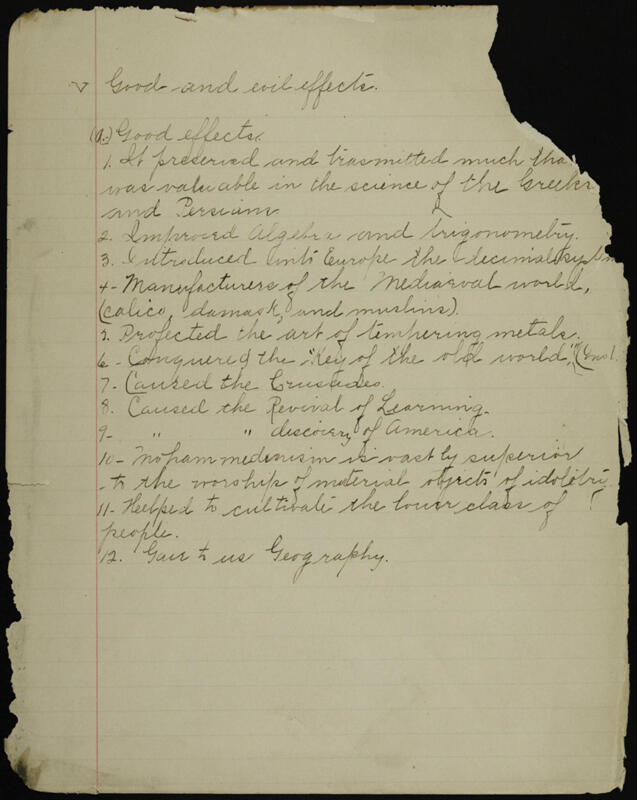 V Good and evil effects.
(a.) Good effects.
1. It preserved and trasmitted much tha
was valuable in the science of the Greeks
and Persians
2. Improved Algebra and trigonometry.
3. Introduced into Europe the decimal system
4- Manufacturers of the Mediaeval world,
(calico, damask, and muslins).
5. Profected the art of tempering metals.
6- Conquered the "Key of the old world," (Const.
7- Caused the Crusades.
8. Caused the Revival of Learning.
9- " " discovery of America.
10- Mohammedenism is vastly superior
to the worship of material objects of idoletry
11- Helped to cultivate the lower class of
people.
12. Gave to us Geography.